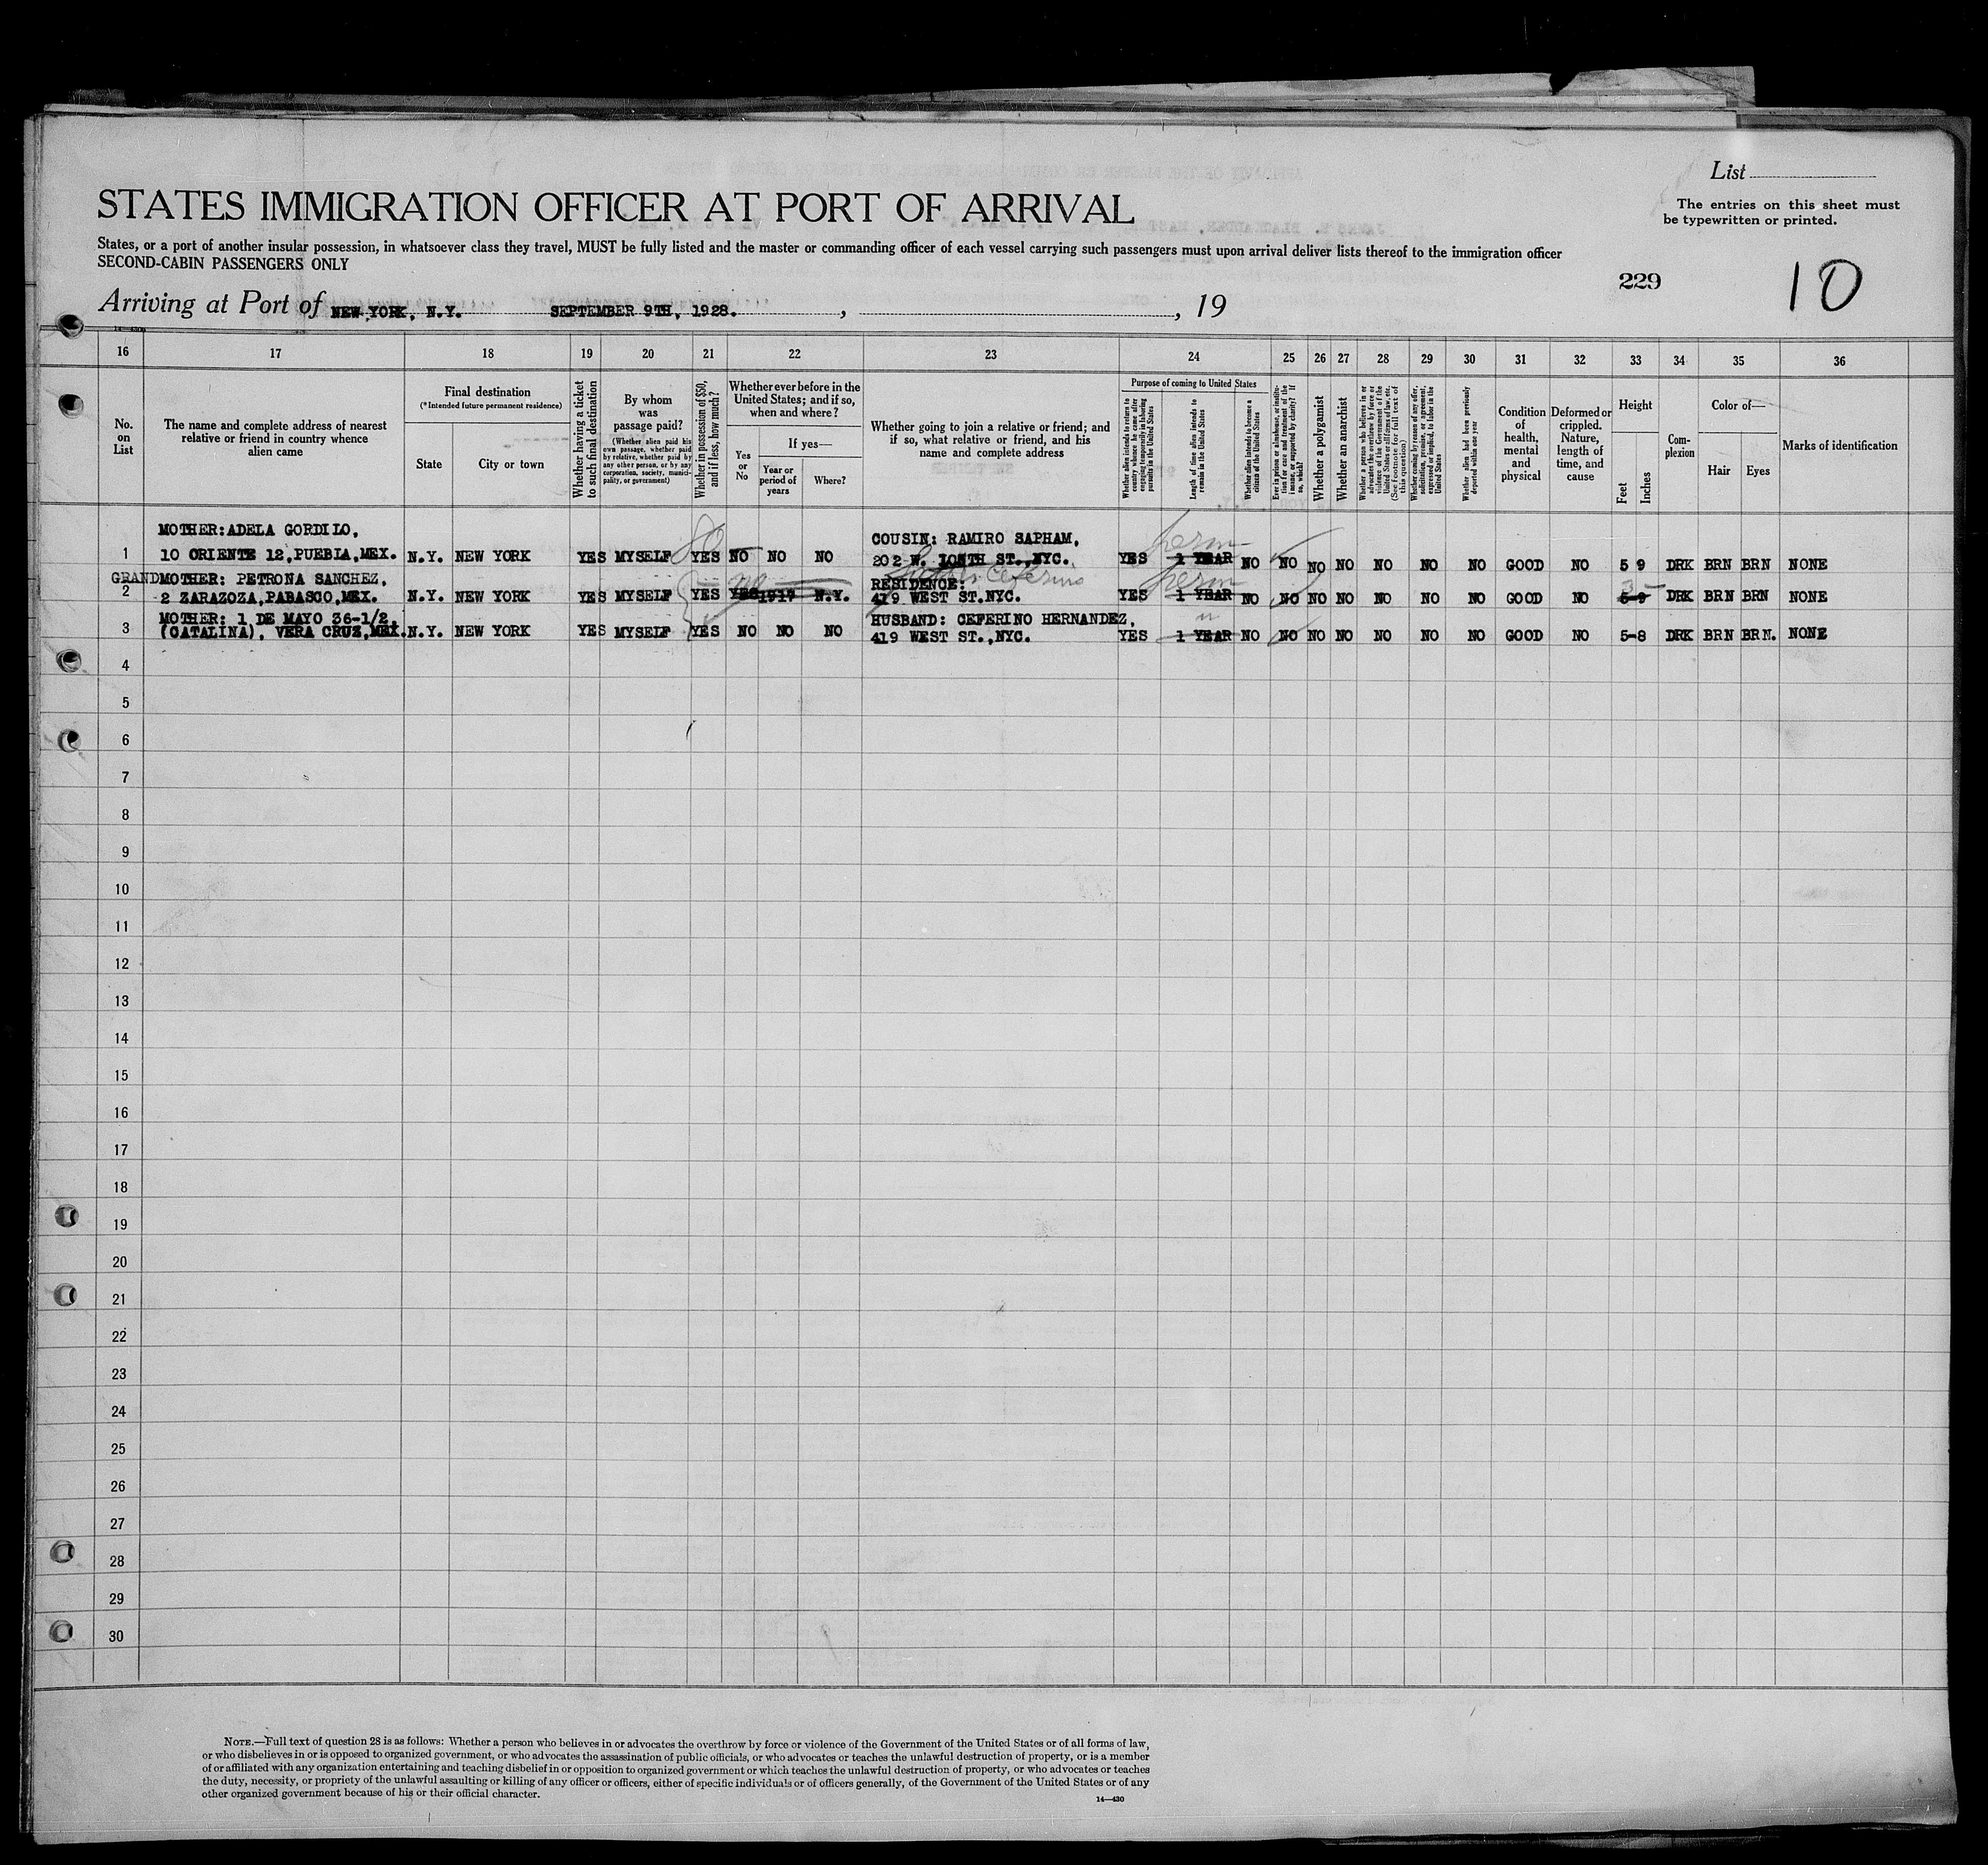 List
The entries on this sheet must
be typewritten or printed.
STATES IMMIGRATION OFFICER AT PORT OF ARRIVAL
States, or a port of another insular possession, in whatsoever class they travel, MUST be fully listed and the master or commanding officer of each vessel carrying such passengers must upon arrival deliver lists thereof to the immigration officer
SECOND-CABIN PASSENGERS ONLY
229
10
Arriving at Port of NEW YORK, N.Y. SEPTEMBER 9TH, 1928. , , 19
16 17 18 19 20 21 22 23 24 25 26 27 28 29 30 31 32 33 34 35 36
No. on List
The name and complete address of nearest relative or friend in country whence alien came
Final destination
(*Intended future permanent residence)
State
City or town
Whether having a ticket to such final destination
By whom was passage paid?
(Whether alien paid his own passage, whether paid by relative, whether paid by any other person, or by any corporation, society, municipality, or government)
Whether in possession of $50, and if less, how much?
Whether ever before in the United States; and if so, when and where?
Yes or No
If yes—
Year or period of years
Where?
Whether going to join a relative or friend; and if so, what relative or friend, and his name and complete address
Purpose of coming to United States
Whether alien intends to return to country whence he came after engaging temporarily in laboring pursuits in the United States
Length of time alien intends to remain in the United States
Whether alien intends to become a citizen of the United States
Ever in prison or almshouse, or institution for care and treatment of the insane, or supported by charity? If so, which?
Whether a polygamist
Whether an anarchist
Whether a person who believes in or advocates the overthrow by force or violence of the Government of the United States or all forms of law, etc. (See footnote for full text of this question)
Whether coming by reason of any offer, solicitation, promise, or agreement, expressed or implied, to labor in the United States
Whether alien had been previously deported within one year
Condition of health, mental and physical
Deformed or crippled. Nature, length of time, and cause
Height
Feet
Inches
Com-plexion
Color of—
Hair
Eyes
Marks of identification
MOTHER:ADELA GORDILO, COUSIN: RAMIRO SAPHAM, perm
1 10 ORIENTE 12,PUEBLA,MEX. N.Y. NEW YORK YES MYSELF 80 YES NO NO NO 202 W. 10NTH ST.,NYC. YES 1 YEAR NO NO NO NO NO NO NO GOOD NO 5 9 DRK BRN BRN NONE
GRANDMOTHER: PETRONA SANCHEZ, no RESIDENCE: Ceferino perm 3
2 2 ZARAZOZA,PABASCO,MEX. N.Y. NEW YORK YES MYSELF YES YES 1917 N.Y. 419 WEST ST.NYC. YES 1 YEAR NO NO NO NO NO NO NO GOOD NO 5-9 DRK BRN BRN NONE
MOTHER: 1 DE MAYO 36-1/2, HUSBAND: CEFERINO HERNANDEZ, "
3 (CATALINA), VERA CRUZ,MEX. N.Y. NEW YORK YES MYSELF YES NO NO NO 419 WEST ST.,NYC. YES 1 YEAR NO NO NO NO NO NO NO GOOD NO 5-8 DRK BRN BRN. NONE
4
5
6
7
8
9
10
11
12
13
14
15
16
17
18
19
20
21
22
23
24
25
26
27
28
29
30
NOTE.—Full text of question 28 is as follows: Whether a person who believes in or advocates the overthrow by force or violence of the Government of the United States or of all forms of law,
or who disbelieves in or is opposed to organized government, or who advocates the assassination of public officials, or who advocates or teaches the unlawful destruction of property, or is a member
of or affiliated with any organization entertaining and teaching disbelief in or opposition to organized government or which teaches the unlawful destruction of property, or who advocates or teaches
the duty, necessity, or propriety of the unlawful assaulting or killing of any officer or officers, either of specific individuals or of officers generally, of the Government of the United States or of any
other organized government because of his or their official character.
14—430